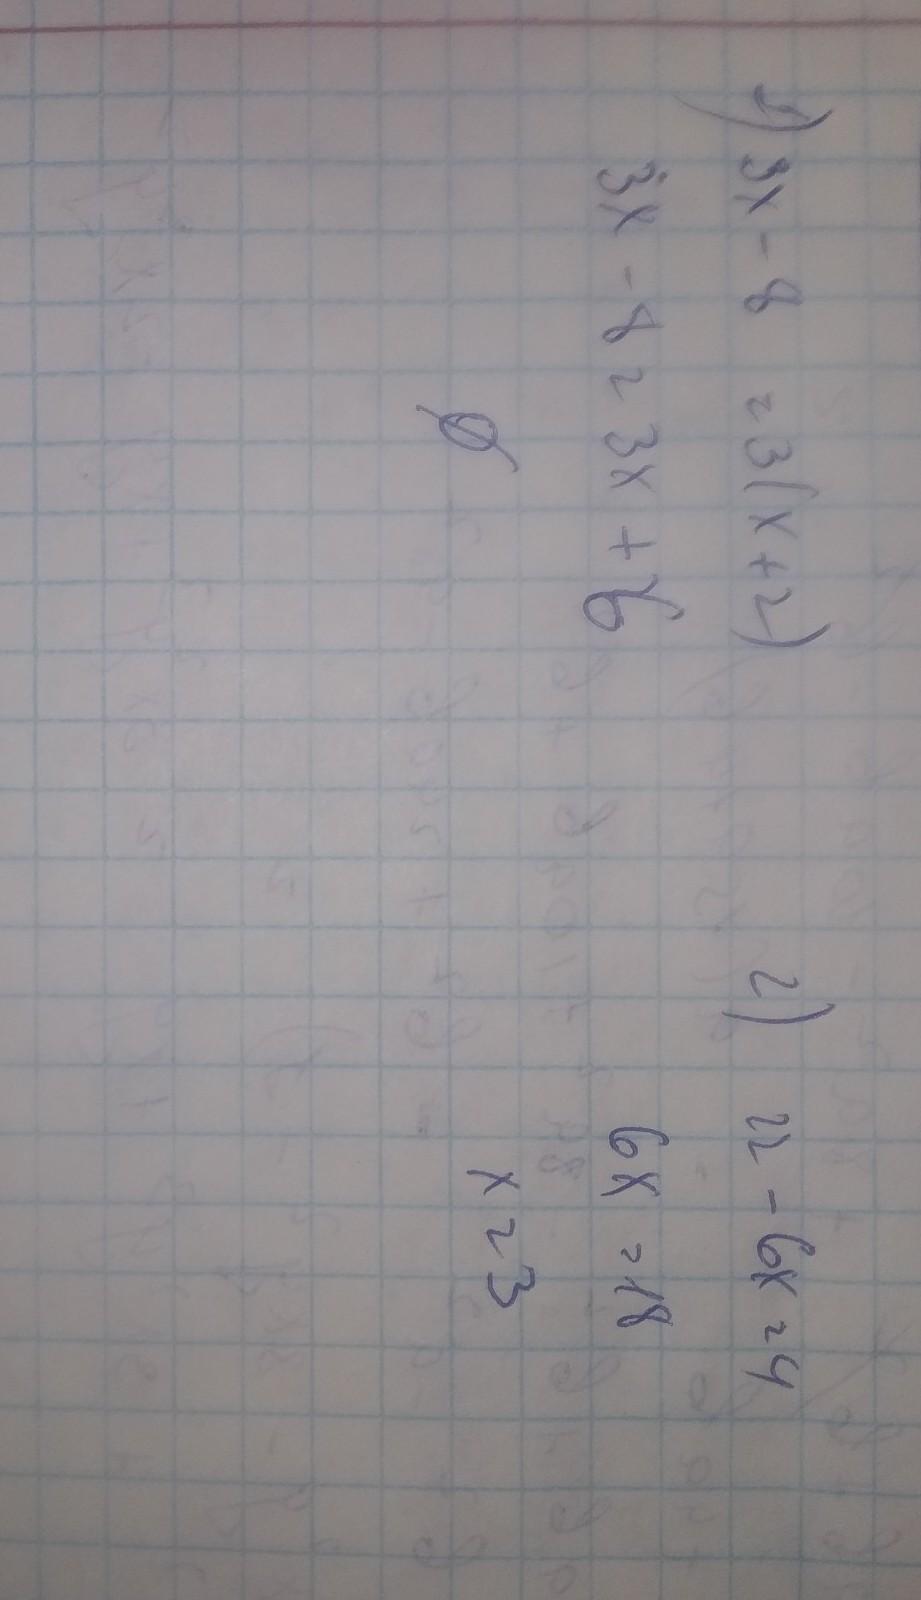 1) 3x - 8 = 3(x+2)
3x - 8 = 3x + 6
∅
2) 22 - 6x = 4
6x = 18
x = 3